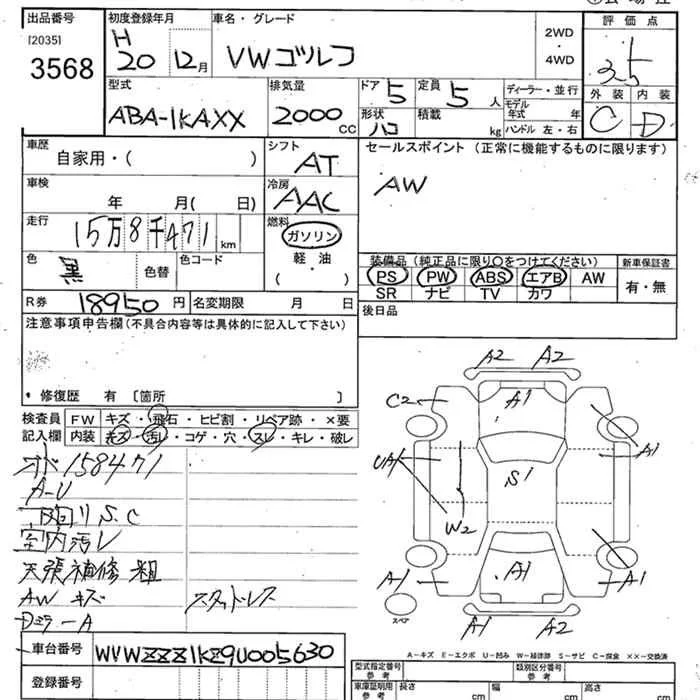 出品番号 初度登録年月 車名・グレード 評価点
[2035] H 2WD
3568 20 12月 VWゴルフ ・ 3.5
4WD
外装 内装
C D
型式 排気量 ドア 定員 ディーラー・並行
ABA-1KAXX 2000cc 5 5人 モデル年式 年
形状 積載 ハンドル 左・右
ハコ kg
車歴 シフト セールスポイント (正常に機能するものに限ります)
自家用・( ) AT AW
車検 冷房
年 月( 日) AAC
走行 燃料
15万8千471km ガソリン
色 色コード 軽・油
黒 色替 ( )
装備品(純正品に限り○をつけてください) 新車保証書
PS PW ABS エアB AW 有・無
SR ナビ TV カワ
R券 18950円 名変期限 月 日 後日品
注意事項申告欄(不具合内容等は具体的に記入して下さい)
・修復歴 有 〔箇所 〕
検査員 FW キズ・飛石・ヒビ割・リペア跡・×要
記入欄 内装 キズ・汚レ・コゲ・穴・スレ・キレ・破レ
オド158471
A-U
下回りS.C
室内汚レ
天張補修粗
AWキズ スタッドレス
Dミラ-A
車台番号 WVWZZZ1KZ9U005630
登録番号
A2 A2
C2 A1
A1
UA1 S1
W2
A1 A1 A1
スペア
A1 A2
A-キズ E-エクボ U-凹み W-補修跡 S-サビ C-腐食 ××-交換済
型式指定番号 参考 類別区分番号 参考
車庫証明用 参考 長さ cm 幅 cm 高さ cm